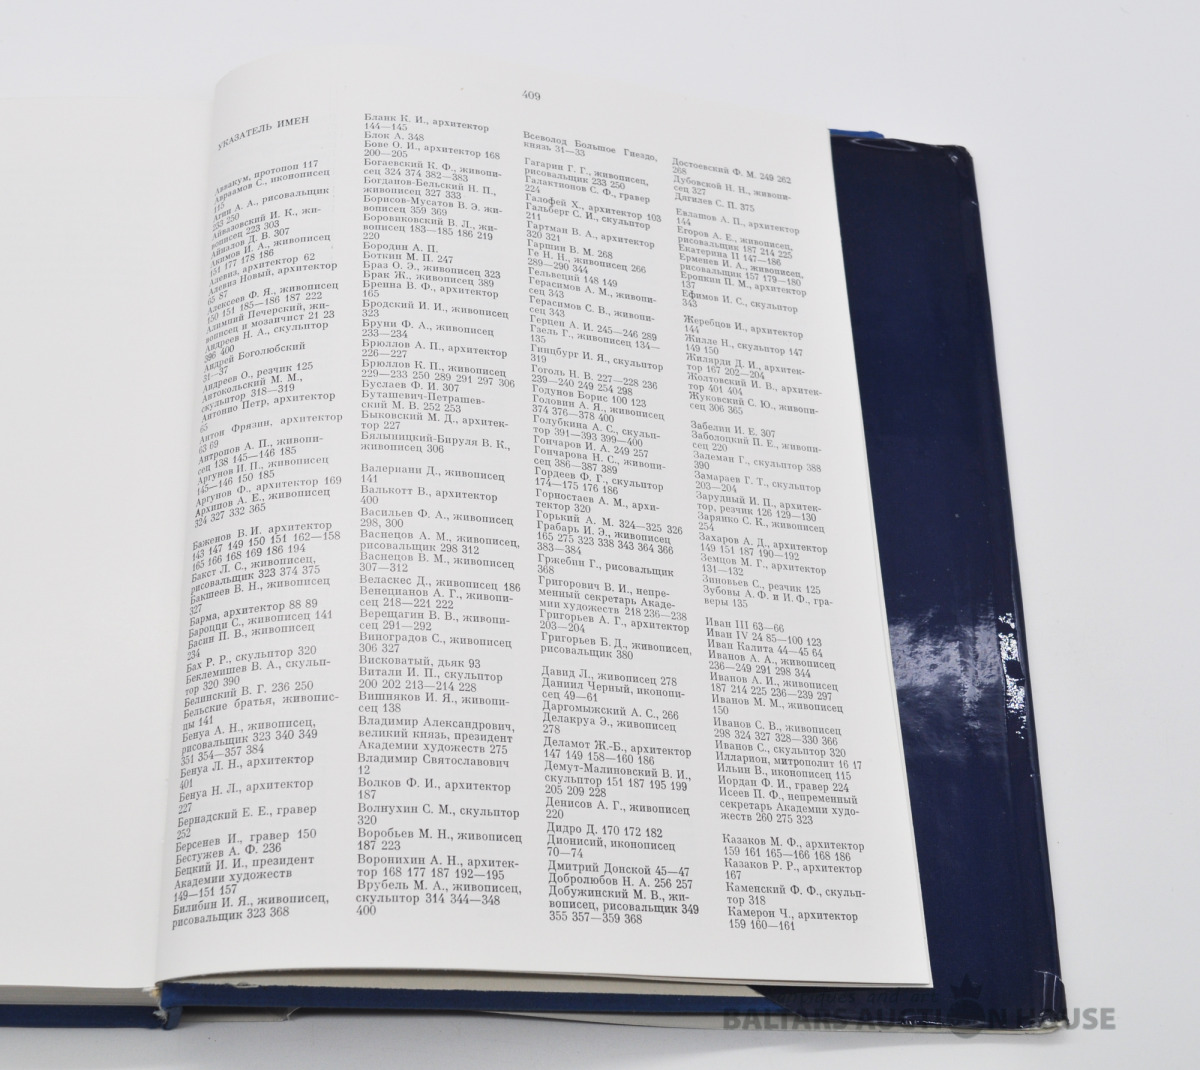 409
УКАЗАТЕЛЬ ИМЕН
Аввакум, протопоп 117
Авраамов С., иконописец
115
Агин А. А., рисовальщик
233 250
Айвазовский И. К., жи-
вописец 223 303
Айналов Д. В. 307
Акимов И. А., живописец
151 177 178 186
Алевиз, архитектор 62
Алевиз Новый, архитектор
65 87
Алексеев Ф. Я., живописец
150 151 185—186 187 222
Алимпий Печерский, жи-
вописец и мозаичист 21 23
Андреев Н. А., скульптор
396 400
Андрей Боголюбский
31—37
Андреев О., резчик 125
Антокольский М. М.,
скульптор 318—319
Антонио Петр, архитектор
65
Антон Фрязин, архитектор
63 69
Антропов А. П., живопи-
сец 138 145—146 185
Аргунов И. П., живописец
145—146 150 185
Аргунов Ф., архитектор 169
Архипов А. Е., живописец
324 327 332 365
Баженов В. И. архитектор
143 147 149 150 151 162—158
165 166 168 169 186 194
Бакст Л. С., живописец,
рисовальщик 323 374 375
Бакшеев В. Н., живописец
327
Барма, архитектор 88 89
Бароцци С., живописец 141
Басин П. В., живописец
234
Бах Р. Р., скульптор 320
Беклемишев В. А., скульп-
тор 320 390
Белинский В. Г. 236 250
Бельские братья, живопис-
цы 141
Бенуа А. Н., живописец,
рисовальщик 323 340 349
351 354—357 384
Бенуа Л. Н., архитектор
401
Бенуа Н. Л., архитектор
227
Бернадский Е. Е., гравер
252
Берсенев И., гравер 150
Бестужев А. Ф. 236
Бецкий И. И., президент
Академии художеств
149—151 157
Билибин И. Я., живописец,
рисовальщик 323 368
Бланк К. И., архитектор
144—145
Блок А. 348
Бове О. И., архитектор 168
200—205
Богаевский К. Ф., живопи-
сец 324 374 382—383
Богданов-Бельский Н. П.,
живописец 327 333
Борисов-Мусатов В. Э. жи-
вописец 359 369
Боровиковский В. Л., жи-
вописец 183—185 186 219
220
Бородин А. П.
Боткин М. П. 247
Браз О. Э., живописец 323
Брак Ж., живописец 389
Бренна В. Ф., архитектор
165
Бродский И. И., живописец
323
Бруни Ф. А., живописец
233—234
Брюллов А. П., архитектор
226—227
Брюллов К. П., живописец
229—233 250 289 291 297 306
Буслаев Ф. И. 307
Буташевич-Петрашев-
ский М. В. 252 253
Быковский М. Д., архитек-
тор 227
Бялыницкий-Бируля В. К.,
живописец 306
Валериани Д., живописец
141
Валькотт В., архитектор
400
Васильев Ф. А., живописец
298, 300
Васнецов А. М., живописец,
рисовальщик 298 312
Васнецов В. М., живописец
307—312
Веласкес Д., живописец 186
Венецианов А. Г., живопи-
сец 218—221 222
Верещагин В. В., живопи-
сец 291—292
Виноградов С., живописец
306 327
Висковатый, дьяк 93
Витали И. П., скульптор
200 202 213—214 228
Вишняков И. Я., живопи-
сец 138
Владимир Александрович,
великий князь, президент
Академии художеств 275
Владимир Святославович
12
Волков Ф. И., архитектор
187
Волнухин С. М., скульптор
320
Воробьев М. Н., живописец
187 223
Воронихин А. Н., архитек-
тор 168 177 187 192—195
Врубель М. А., живописец,
скульптор 314 344—348
400
Всеволод Большое Гнездо,
князь 31—33
Гагарин Г. Г., живописец,
рисовальщик 233 250
Галактионов С. Ф., гравер
224
Галофей Х., архитектор 103
Гальберг С. И., скульптор
211
Гартман В. А., архитектор
320 321
Гаршин В. М. 268
Ге Н. Н., живописец 266
289—290 344
Гельвеций 148 149
Герасимов А. М., живопи-
сец 343
Герасимов С. В., живопи-
сец 343
Герцен А. И. 245—246 289
Гзель Г., живописец 134—
135
Гинцбург И. Я., скульптор
319
Гоголь Н. В. 227—228 236
239—240 249 254 298
Годунов Борис 100 123
Головин А. Я., живописец
374 376—378 400
Голубкина А. С., скульп-
тор 391—393 399—400
Гончаров И. А. 249 257
Гончарова Н. С., живопи-
сец 386—387 389
Гордеев Ф. Г., скульптор
174—175 176 186
Горностаев А. М., архи-
тектор 320
Горький А. М. 324—325 326
Грабарь И. Э., живописец
165 275 323 338 343 364 366
383—384
Гржебин Г., рисовальщик
368
Григорович В. И., непре-
менный секретарь Акаде-
мии художеств 218 236—238
Григорьев А. Г., архитектор
203—204
Григорьев Б. Д., живописец,
рисовальщик 380
Давид Л., живописец 278
Даниил Черный, иконопи-
сец 49—61
Даргомыжский А. С., 266
Делакруа Э., живописец
278
Деламот Ж.-Б., архитектор
147 149 158—160 186
Демут-Малиновский В. И.,
скульптор 151 187 195 199
205 209 228
Денисов А. Г., живописец
220
Дидро Д. 170 172 182
Дионисий, иконописец
70—74
Дмитрий Донской 45—47
Добролюбов Н. А. 256 257
Добужинский М. В., жи-
вописец, рисовальщик 349
355 357—359 368
Достоевский Ф. М. 249 262
268
Дубовской Н. Н., живопи-
сец 327
Дягилев С. П. 375
Евлашов А. П., архитектор
144
Егоров А. Е., живописец,
рисовальщик 187 214 225
Екатерина II 147—186
Ерменев И. А., живописец,
рисовальщик 157 179—180
Еропкин П. М., архитектор
137
Ефимов И. С., скульптор
343
Жеребцов И., архитектор
144
Жилле Н., скульптор 147
149 150
Жилярди Д. И., архитек-
тор 167 202—204
Жолтовский И. В., архитек-
тор 401 404
Жуковский С. Ю., живопи-
сец 306 365
Забелин И. Е. 307
Заболоцкий П. Е., живопи-
сец 220
Залеман Г., скульптор 388
390
Замараев Г. Т., скульптор
203—204
Зарудный И. П., архитек-
тор, резчик 126 129—130
Зарянко С. К., живописец
254
Захаров А. Д., архитектор
149 151 187 190—192
Земцов М. Г., архитектор
131—132
Зиновьев С., резчик 125
Зубовы А. Ф. и И. Ф., гра-
веры 135
Иван III 63—66
Иван IV 24 85—100 123
Иван Калита 44—45 64
Иванов А. А., живописец
236—249 291 298 344
Иванов А. И., живописец
187 214 225 236—239 297
Иванов М. М., живописец
150
Иванов С. В., живописец
298 324 327 328—330 366
Иванов С., скульптор 320
Илларион, митрополит 16 17
Ильин В., иконописец 115
Иордан Ф. И., гравер 224
Исеев П. Ф., непременный
секретарь Академии худо-
жеств 260 275 323
Казаков М. Ф., архитектор
159 161 165—166 168 186
Казаков Р. Р., архитектор
167
Каменский Ф. Ф., скульп-
тор 318
Камерон Ч., архитектор
159 160—161
BALTARS AUCTION HOUSE